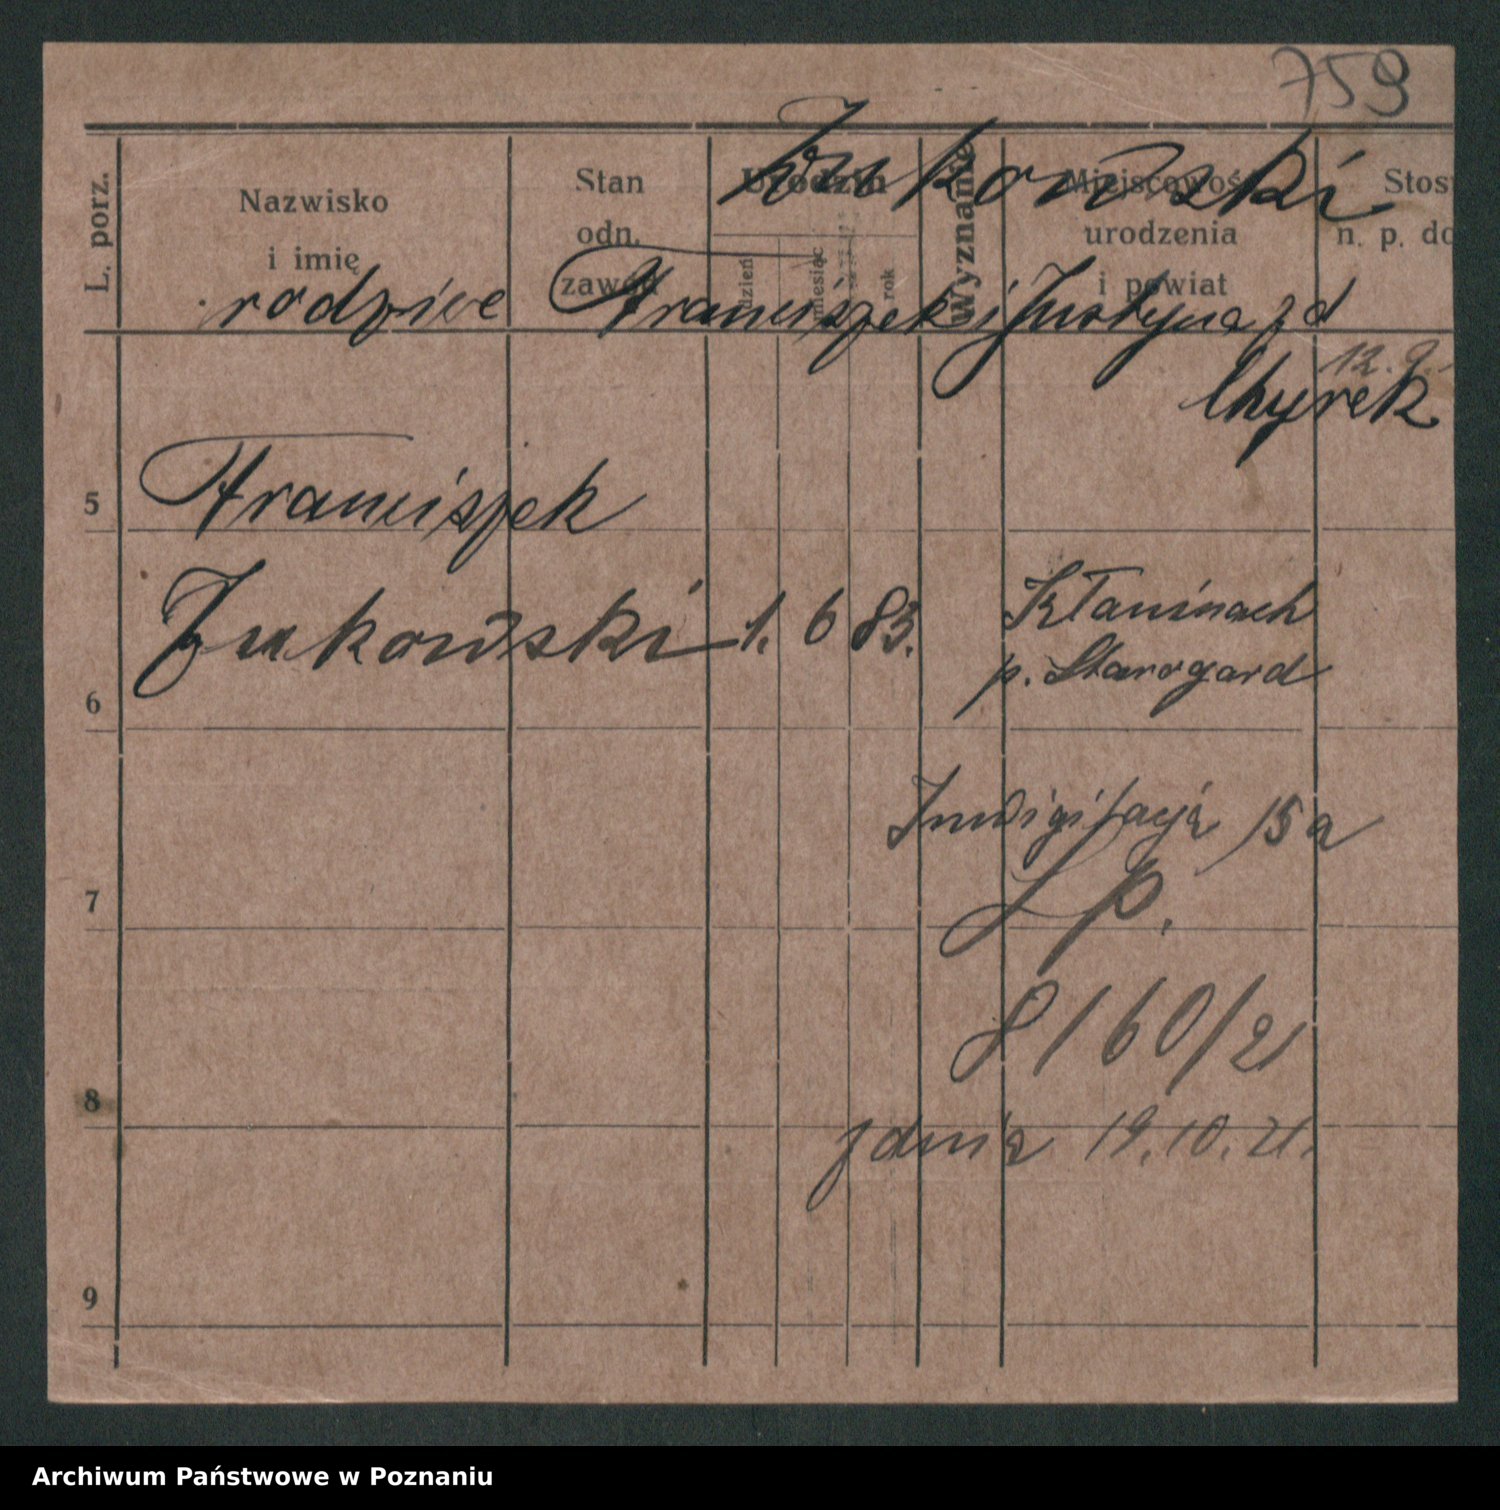 759
Żukowski
L. porz.
Nazwisko
i imię
Stan
odn.
zawód
Urodzin
dzień
miesiąc
rok
Wyznanie
Miejscowość
urodzenia
i powiat
Stos
n. p. do
rodzice Franciszek i Justyna zd
12.9.
Chyrek
5
Franciszek
6
Żukowski 1. 6 83.
Kłaninach
p. Starogard
Inwigilacja 15a
7
Lp.
8160/21
8
z dnia 19.10.21.
9
Archiwum Państwowe w Poznaniu